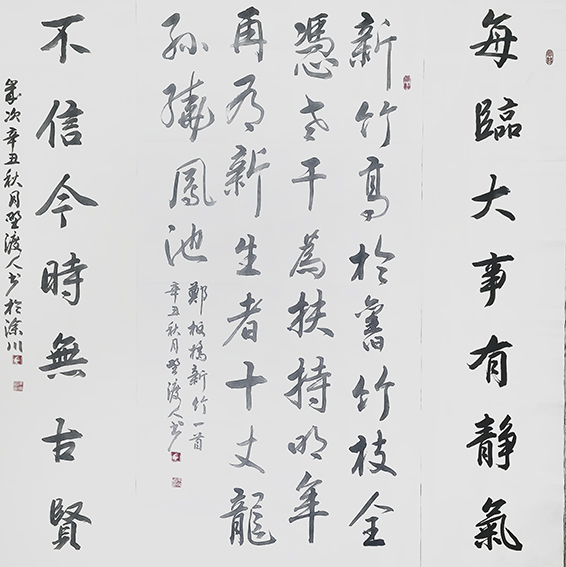 每臨大事有靜氣
新竹高於舊竹枝全
憑老干為扶持明年
再有新生者十丈龍
孫繞鳳池
鄭板橋新竹一首
辛丑秋月野渡人书
不信今時無古賢
歲次辛丑秋月野渡人书於川